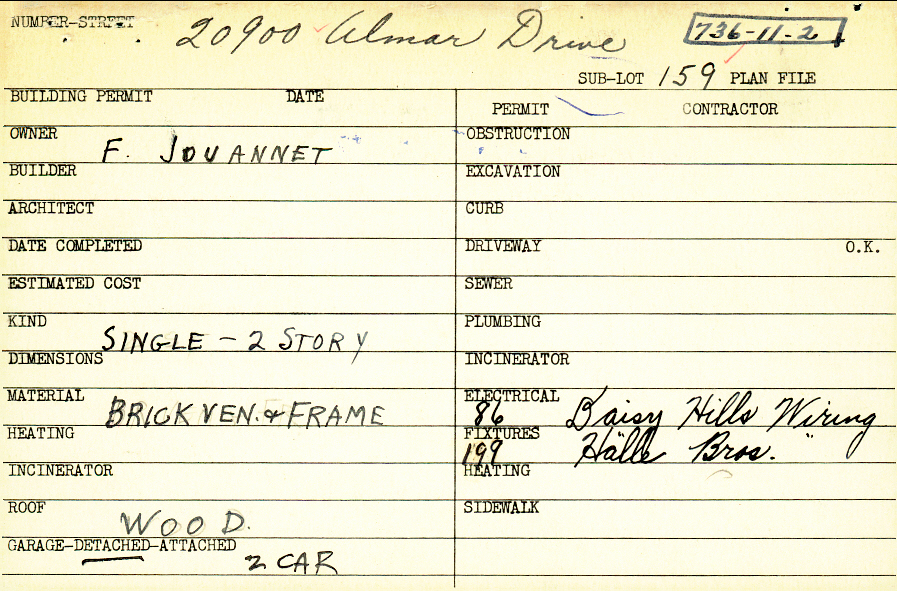 NUMBER-STREET 20900 Almar Drive 736-11-2
SUB-LOT 159 PLAN FILE
BUILDING PERMIT DATE
PERMIT CONTRACTOR
OWNER F. JOUANNET
OBSTRUCTION
BUILDER
EXCAVATION
ARCHITECT
CURB
DATE COMPLETED
DRIVEWAY O.K.
ESTIMATED COST
SEWER
KIND SINGLE - 2 STORY
PLUMBING
DIMENSIONS
INCINERATOR
MATERIAL BRICK VEN. & FRAME
ELECTRICAL 86 Daisy Hills Wiring
HEATING
FIXTURES 199 Halle Bros. "
INCINERATOR
HEATING
ROOF WOOD.
SIDEWALK
GARAGE-DETACHED-ATTACHED 2 CAR